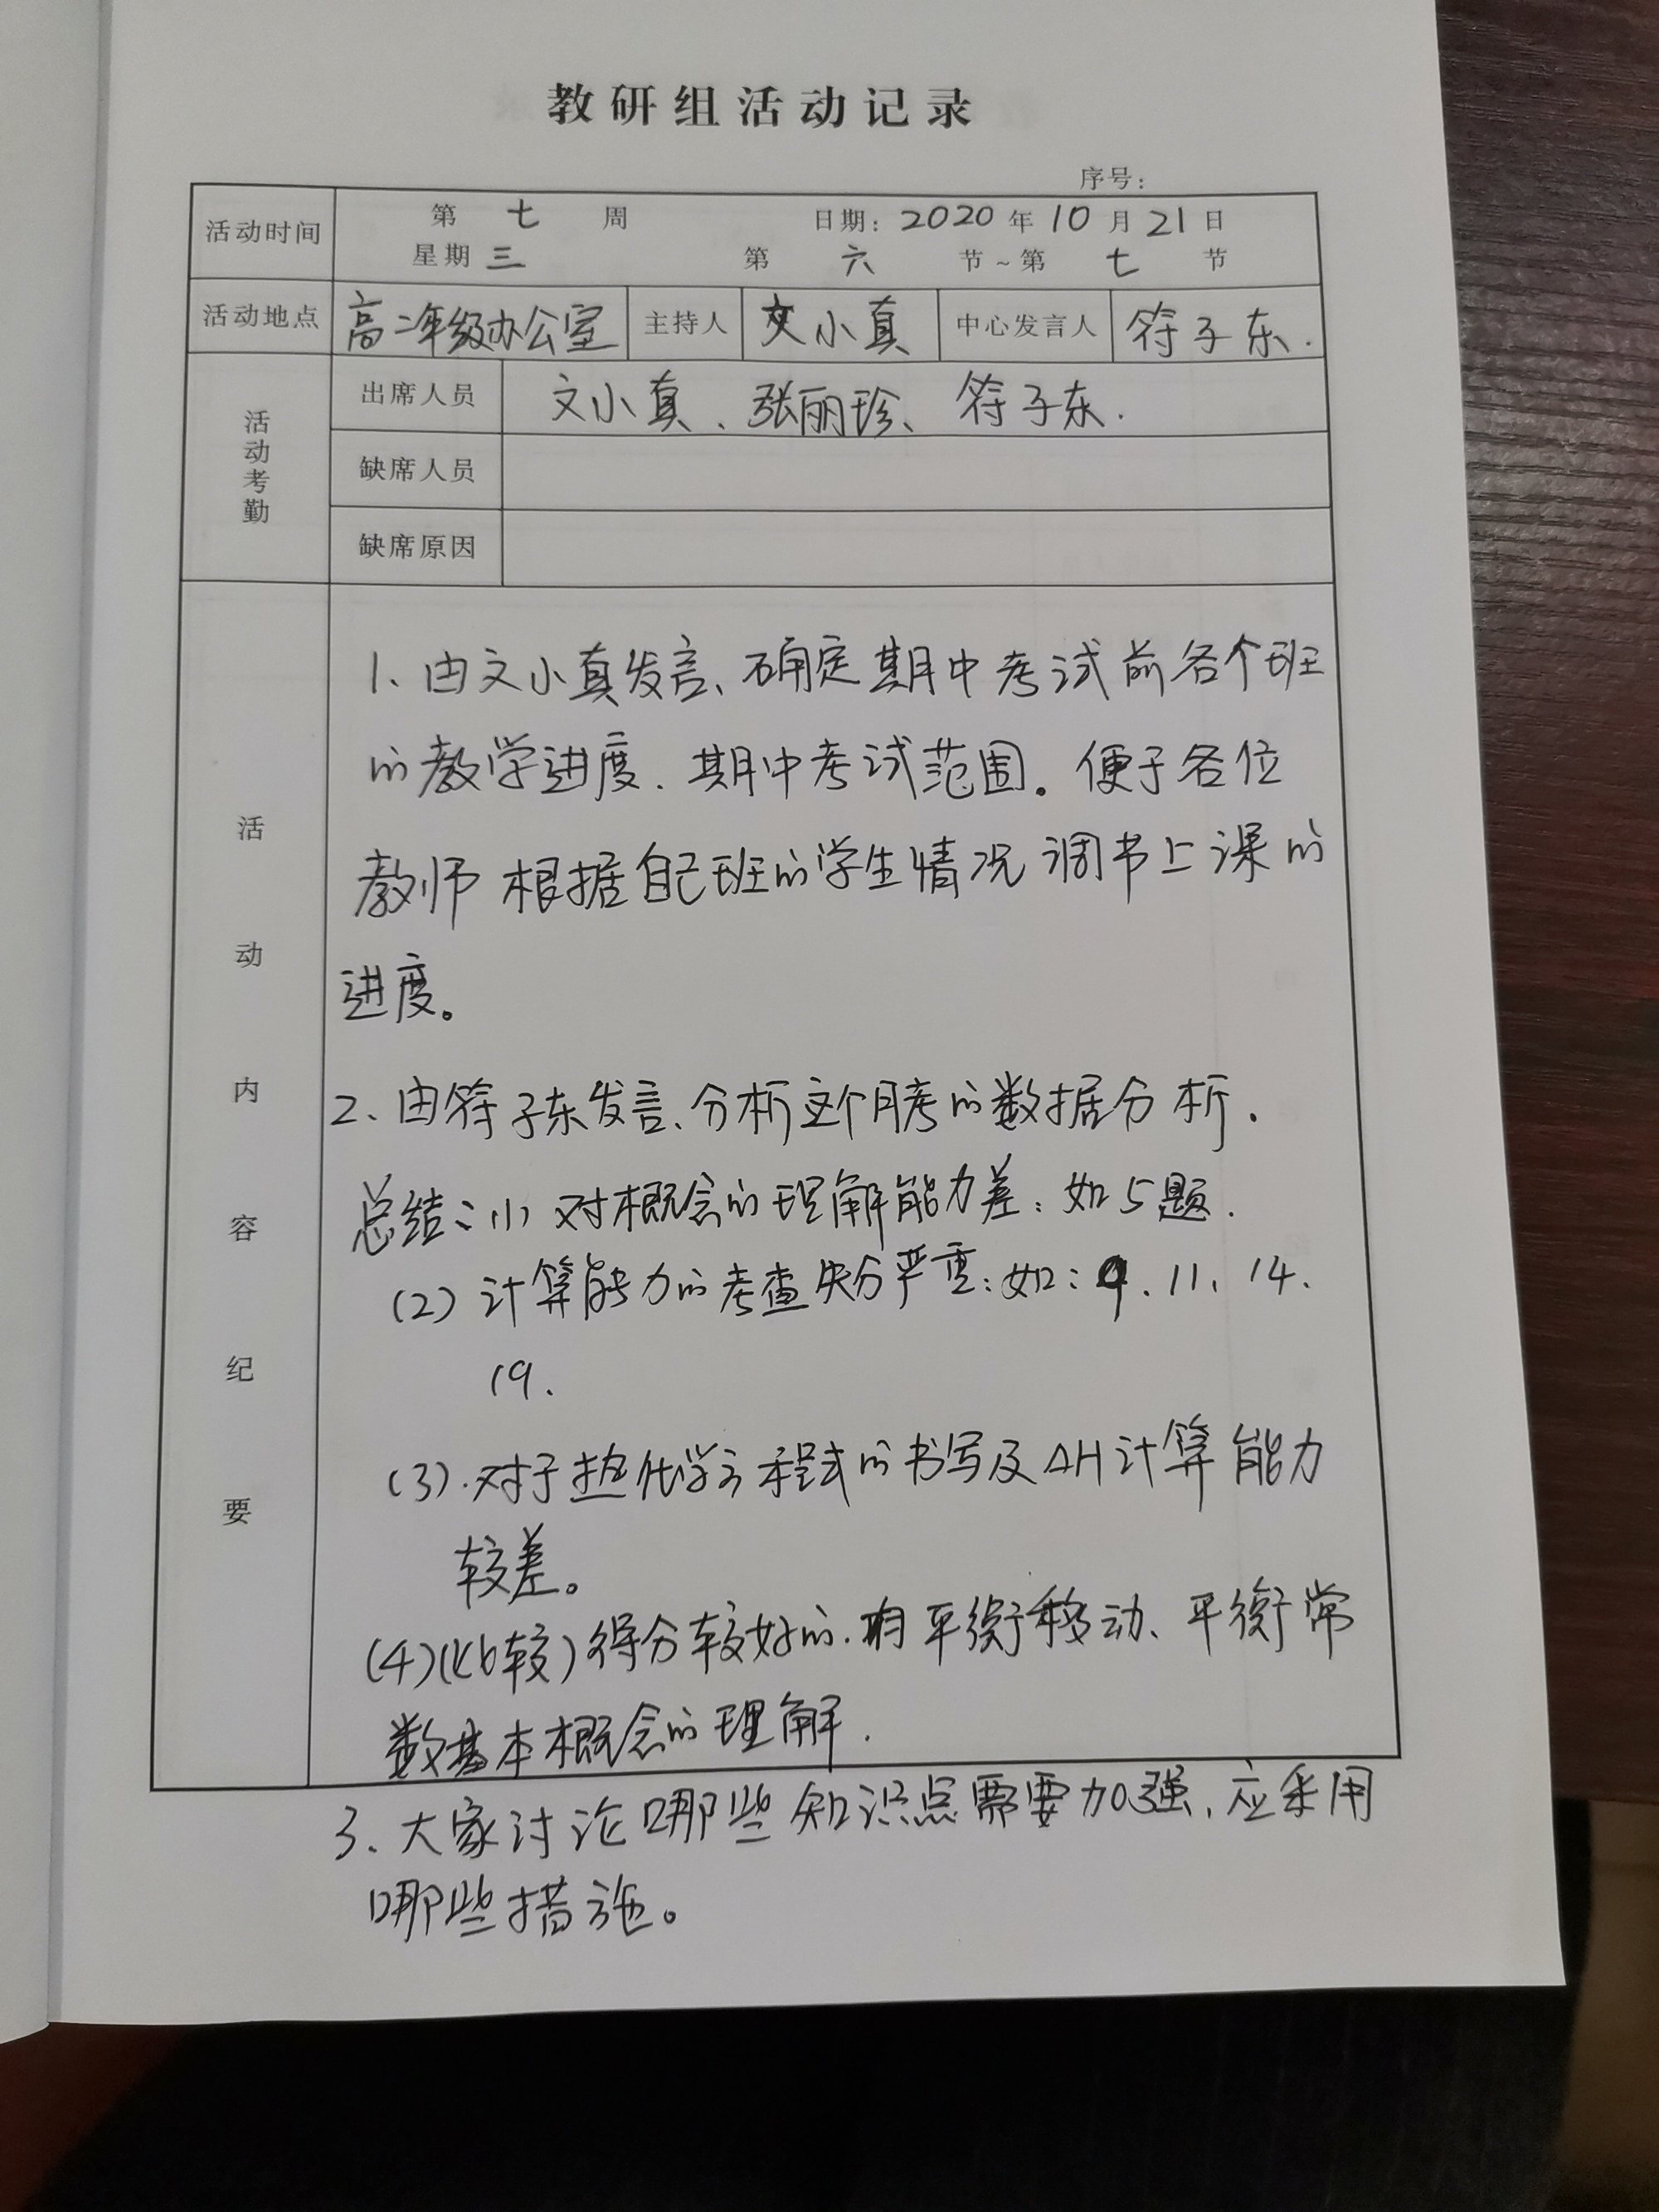 教研组活动记录
序号：
活动时间
第 七 周 日期：2020年10月21日
星期 三 第 六 节～第 七 节
活动地点 高二年级办公室 主持人 文小真 中心发言人 符子东.
活动考勤
出席人员 文小真、张丽珍、符子东.
缺席人员
缺席原因
活动内容纪要
1、由文小真发言、确定期中考试前各个班
的教学进度、期中考试范围。便于各位
教师根据自己班的学生情况调节上课的
进度。
2、由符子东发言、分析这个月考的数据分析.
总结：(1) 对概念的理解能力差：如5题.
(2) 计算能力的考查失分严重：如：9、11、14、
19.
(3). 对于热化学方程式的书写及△H计算能力
较差。
(4)(比较)得分较好的.有平衡移动、平衡常
数基本概念的理解.
3、大家讨论哪些知识点需要加强、应采用
哪些措施。